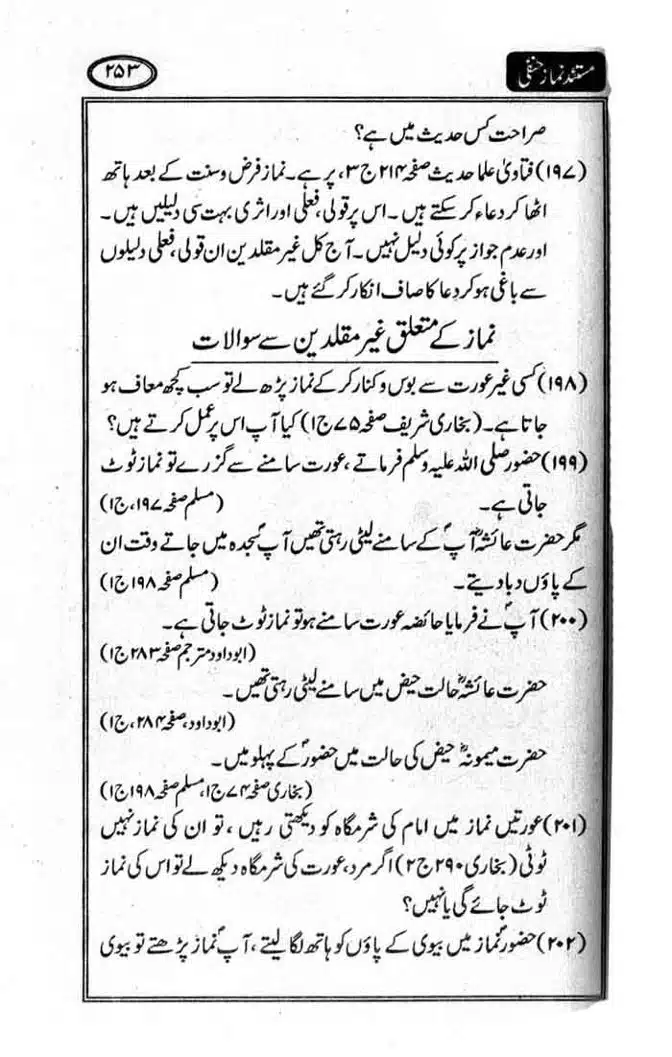 مستند نماز حنفی
۲۵۳
صراحت کس حدیث میں ہے؟
(۱۹۷) فتاویٰ علماحدیث صفحہ ۲۱۴ ج ۳، پر ہے۔ نماز فرض وسنت کے بعد ہاتھ
اٹھا کر دعاء کر سکتے ہیں۔ اس پر قولی، فعلی اور اثری بہت سی دلیلیں ہیں۔
اور عدم جواز پر کوئی دلیل نہیں۔ آج کل غیر مقلدین ان قولی، فعلی دلیلوں
سے باغی ہو کر دعا کا صاف انکار کر گئے ہیں۔
نماز کے متعلق غیر مقلدین سے سوالات
(۱۹۸) کسی غیر عورت سے بوس و کنار کر کے نماز پڑھ لے تو سب کچھ معاف ہو
جاتا ہے۔ (بخاری شریف صفحہ ۷۵ ج ۱) کیا آپ اس پر عمل کرتے ہیں؟
(۱۹۹) حضور صلی اللہ علیہ وسلم فرماتے، عورت سامنے سے گزرے تو نماز ٹوٹ
جاتی ہے۔ (مسلم صفحہ ۱۹۷، ج ۱)
مگر حضرت عائشہؓ آپؐ کے سامنے لیٹی رہتی تھیں آپؐ سجدہ میں جاتے وقت ان
کے پاؤں دبا دیتے۔ (مسلم صفحہ ۱۹۸ ج ۱)
(۲۰۰) آپؐ نے فرمایا حائضہ عورت سامنے ہو تو نماز ٹوٹ جاتی ہے۔
(ابوداود مترجم صفحہ ۲۸۳ ج ۱)
حضرت عائشہؓ حالت حیض میں سامنے لیٹی رہتی تھیں۔
(ابوداود، صفحہ ۲۸۴، ج ۱)
حضرت میمونہؓ حیض کی حالت میں حضورؐ کے پہلو میں۔
(بخاری صفحہ ۷۴ ج ۱، مسلم صفحہ ۱۹۸ ج ۱)
(۲۰۱) عورتیں نماز میں امام کی شرمگاہ کو دیکھتی رہیں، تو ان کی نماز نہیں
ٹوٹی (بخاری ۲۹۰ ج ۲) اگر مرد، عورت کی شرمگاہ دیکھ لے تو اس کی نماز
ٹوٹ جائے گی یا نہیں؟
(۲۰۲) حضورؐ نماز میں بیوی کے پاؤں کو ہاتھ لگا لیتے، آپؐ نماز پڑھتے تو بیوی